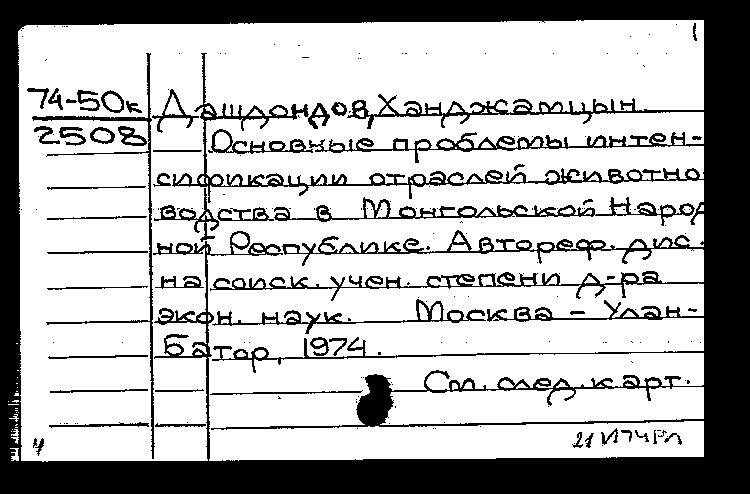 74-50к
2508
Дашдондов, Ханджамцын.
Основные проблемы интен-
сификации отраслей животно
водства в Монгольской Народ
ной Республике. Автореф. дис.
на соиск. учен. степени д-ра
экон. наук. Москва - Улан-
Батор, 1974.
См. след. карт.
4